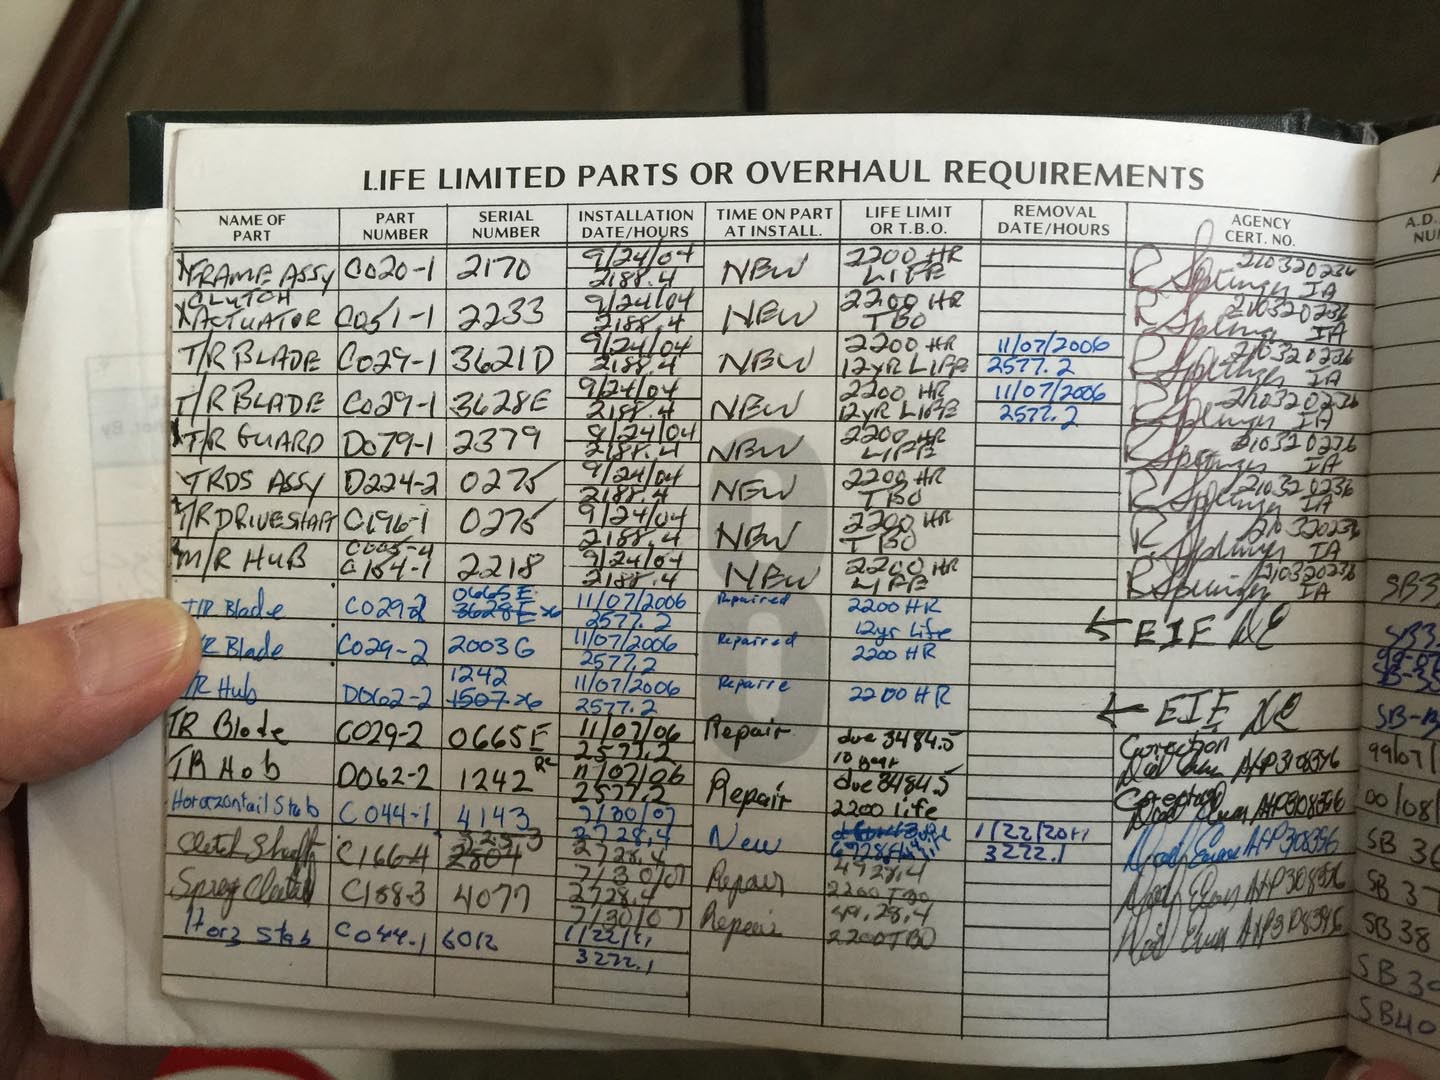 LIFE LIMITED PARTS OR OVERHAUL REQUIREMENTS
NAME OF PART | PART NUMBER | SERIAL NUMBER | INSTALLATION DATE/HOURS | TIME ON PART AT INSTALL. | LIFE LIMIT OR T.B.O. | REMOVAL DATE/HOURS | AGENCY CERT. NO.
FRAME ASSY C020-1 2170 9/24/04 2188.4 NEW 2200 HR LIFE R Springer 210320236 IA
CLUTCH ACTUATOR C051-1 2233 9/24/04 2188.4 NEW 2200 HR TBO R Springer 210320236 IA
T/R BLADE C029-1 3621D 9/24/04 2188.4 NEW 2200 HR 12yR LIFE 11/07/2006 2577.2 R Springer 210320236 IA
T/R BLADE C029-1 3628E 9/24/04 2188.4 NEW 2200 HR 12yR LIFE 11/07/2006 2577.2 R Springer 210320236 IA
T/R GUARD D079-1 2379 9/24/04 2188.4 NEW 2200 HR LIFE R Springer 210320236 IA
TRDS ASSY D224-2 0275 9/24/04 2188.4 NEW 2200 HR TBO R Springer 210320236 IA
T/R DRIVESHAFT C196-1 0275 9/24/04 2188.4 NEW 2200 HR TBO R Springer 210320236 IA
M/R HUB C154-1 2218 9/24/04 2188.4 NEW 2200 HR LIFE R Springer 210320236 IA
T/R Blade C029-2 0665E 3628E 11/07/2006 2577.2 Repaired 2200 HR 12yr Life ← EIF NE
/R Blade C029-2 2003G 11/07/2006 2577.2 Repaired 2200 HR
/R Hub D062-2 1242 1507 11/07/2006 2577.2 Repaire 2200 HR ← EIE NE
TR Blade C029-2 0665E 11/07/06 2577.2 Repair due 3484.5 10 year Correction A&P308396
TR Hub D062-2 1242 11/07/06 2577.2 Repair due 3484.5 2200 Life A&P308396
Horozontail Stab C044-1 4143 7/30/07 2728.4 New 1/22/2011 3222.1 A&P308396
Clutch Shaft C166-4 2728.4 7/30/07 Repair 4928.4 2200 TBO A&P308396
Spreg Clutch C188-3 4077 2728.4 7/30/07 Repair 49.28.4 2200 TBO A&P308396
Horz Stab C044-1 6012 1/22/11 3222.1
A.D.
NU
SB3
SB-3
99/07/
00/08/
SB 36
SB 37
SB 38
SB 39
SB40